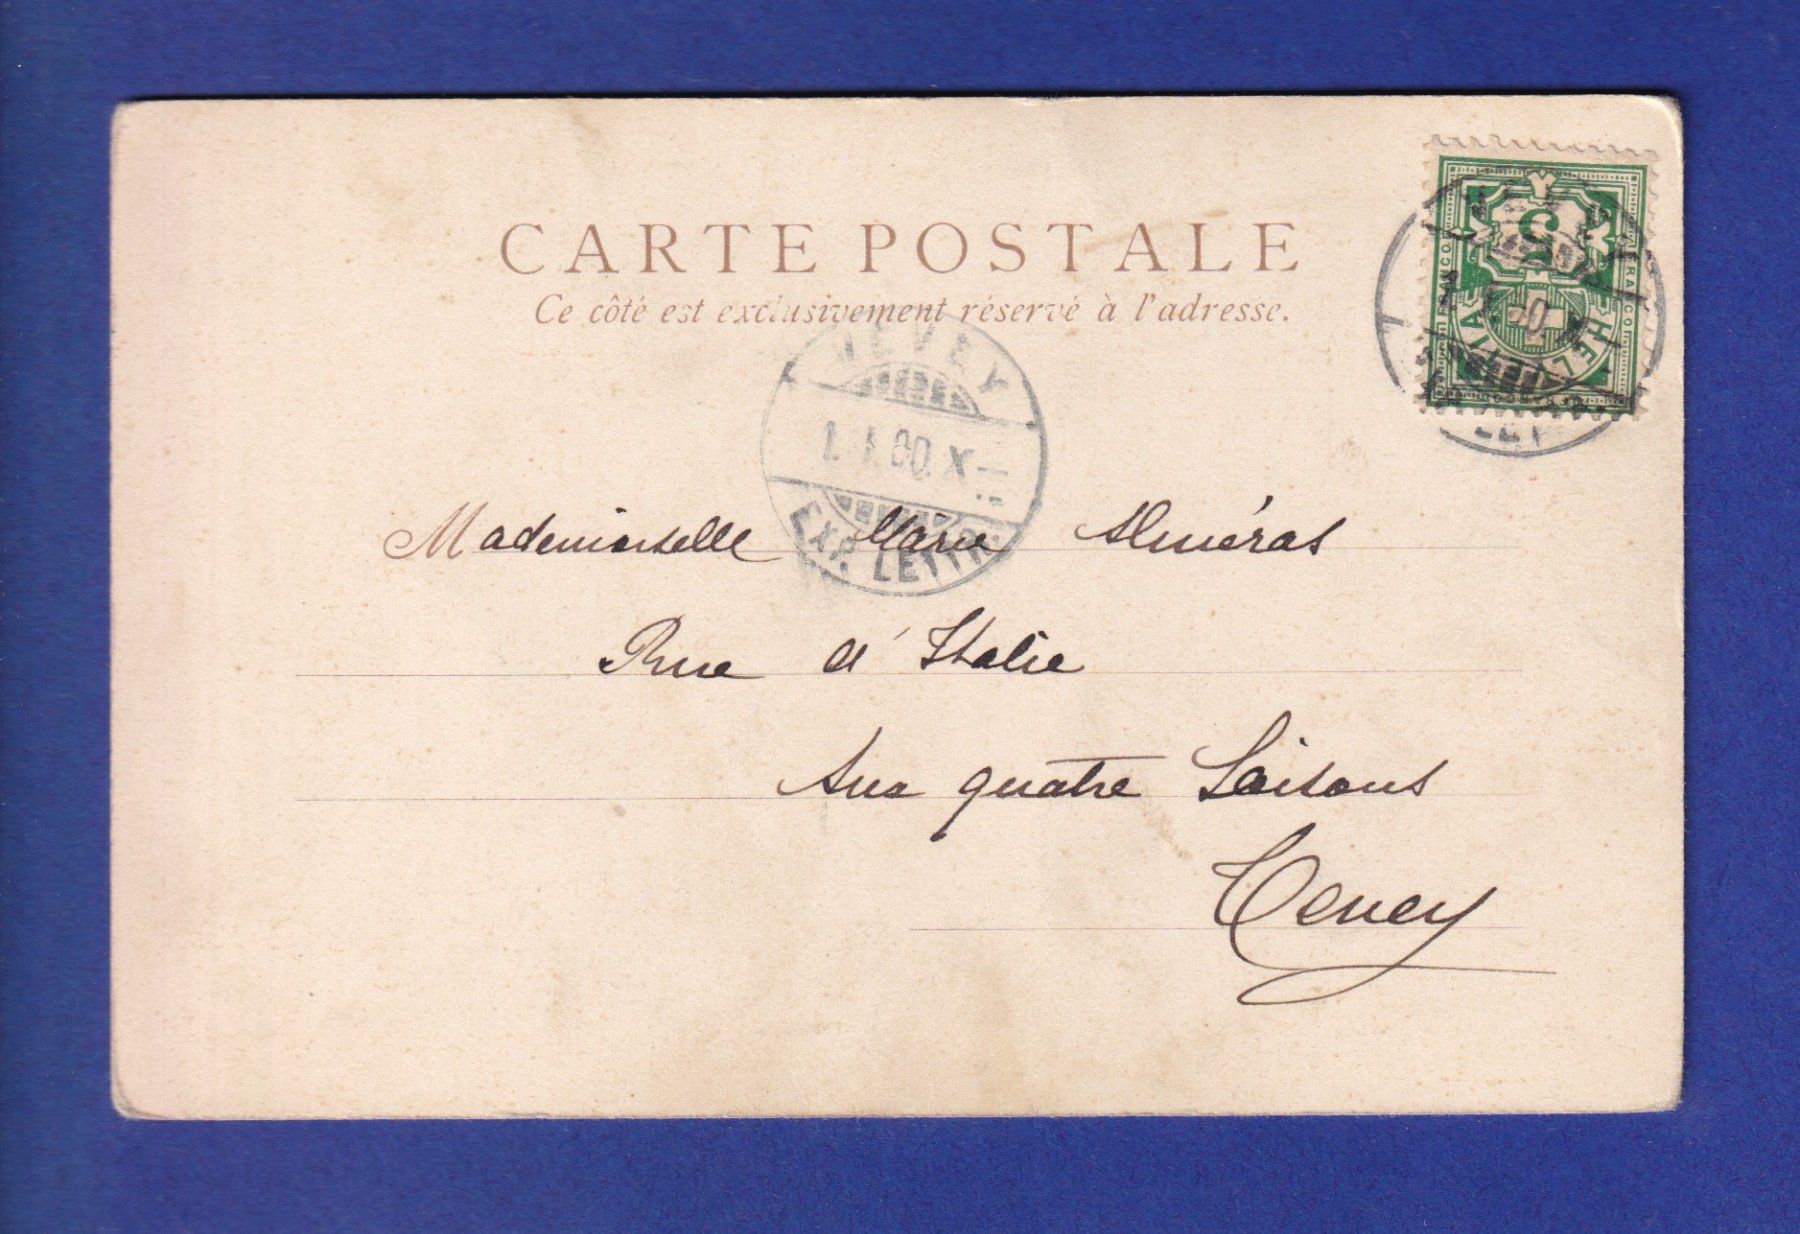 CARTE POSTALE
Ce côté est exclusivement réservé à l'adresse.
5
FRANCO
FRANCO
HELVETIA
VEVEY
1. I. 00. X
EXP. LETTR.
Mademoiselle Marie Alméras
Rue d'Italie
Aux quatre Saisons
Vevey